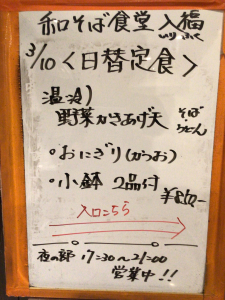 和そば食堂 入福
3/10 <日替定食>
温冷)
野菜かきあげ天 そば・うどん
・おにぎり(かつお)
・小鉢 2品付
入口こちら
夜の部 17:30~21:00
営業中!!